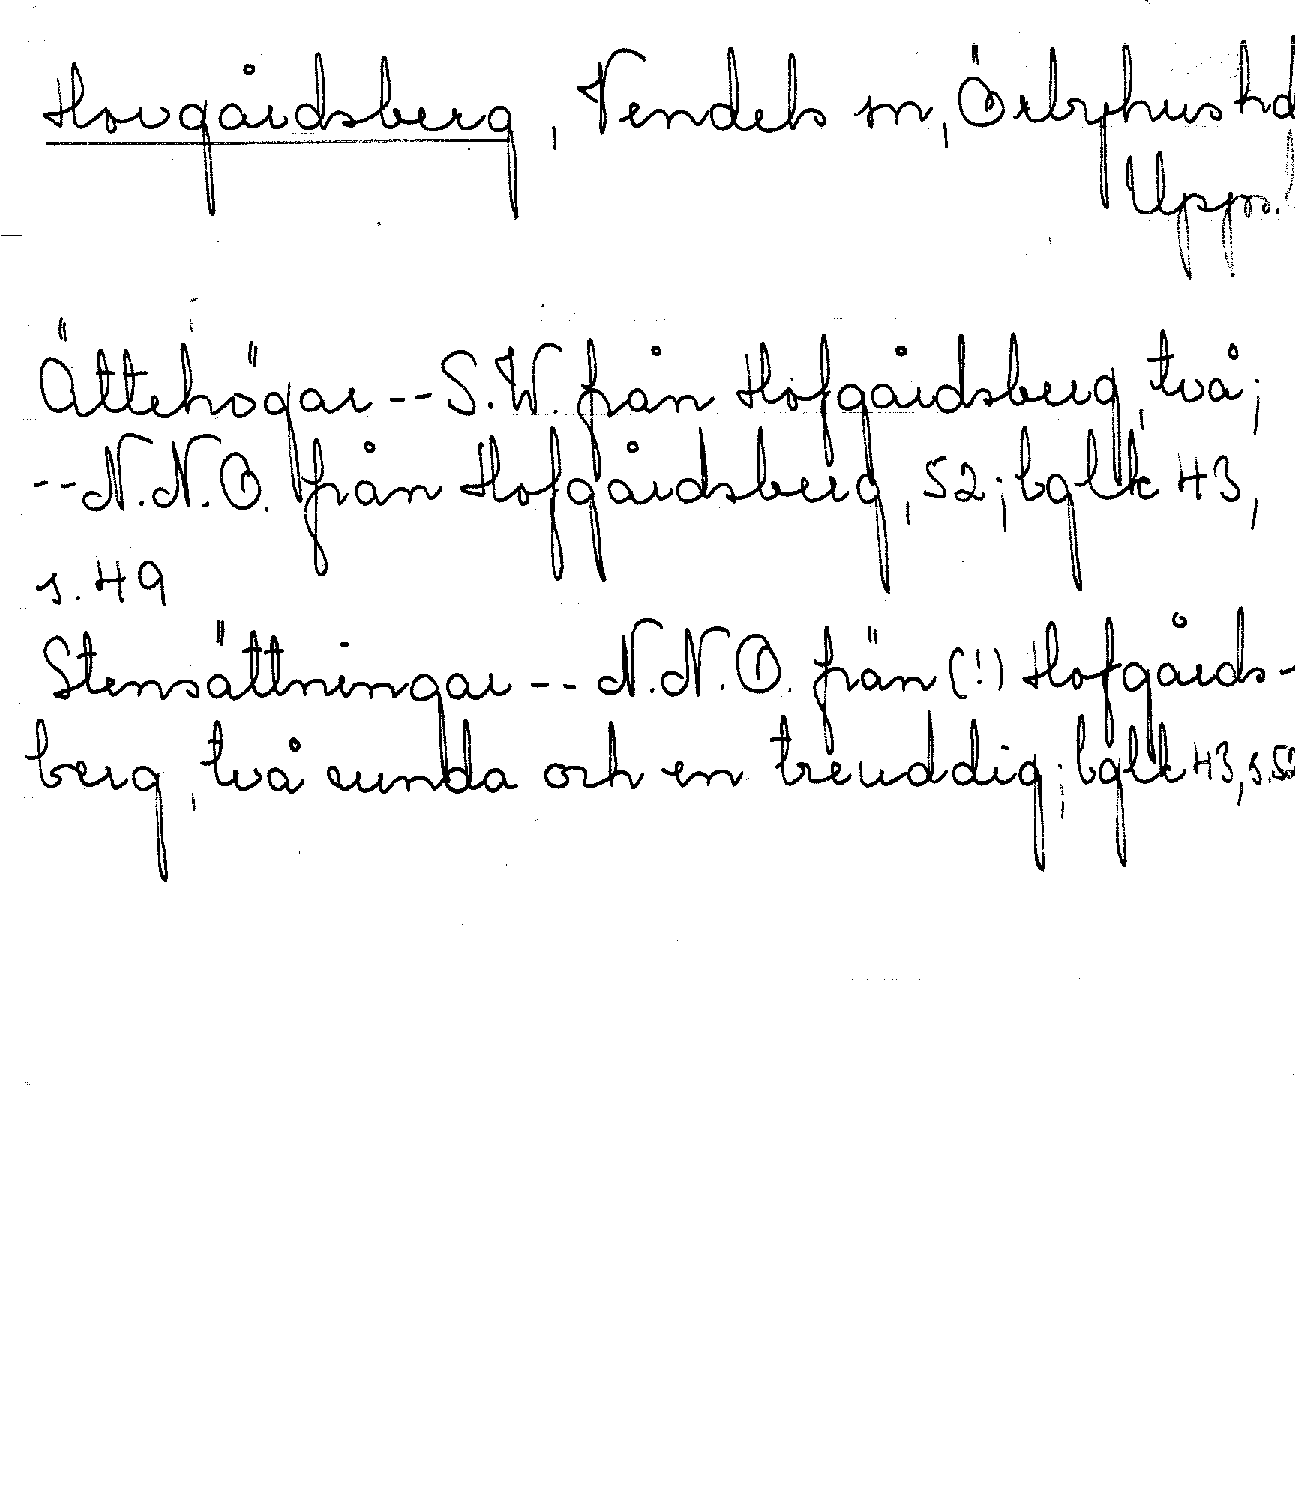 Hovgårdsberg, Vendels sn, Örbyhus hd
Upps.
Ättehögar -- S.W. från Hofgårdsberg, två;
-- N.N.O. från Hofgårdsberg, 52; bglk 43,
s. 49
Stensättningar -- N.N.O. frän (!) Hofgårds-
berg, två runda och en treuddig; bglk 43, s.